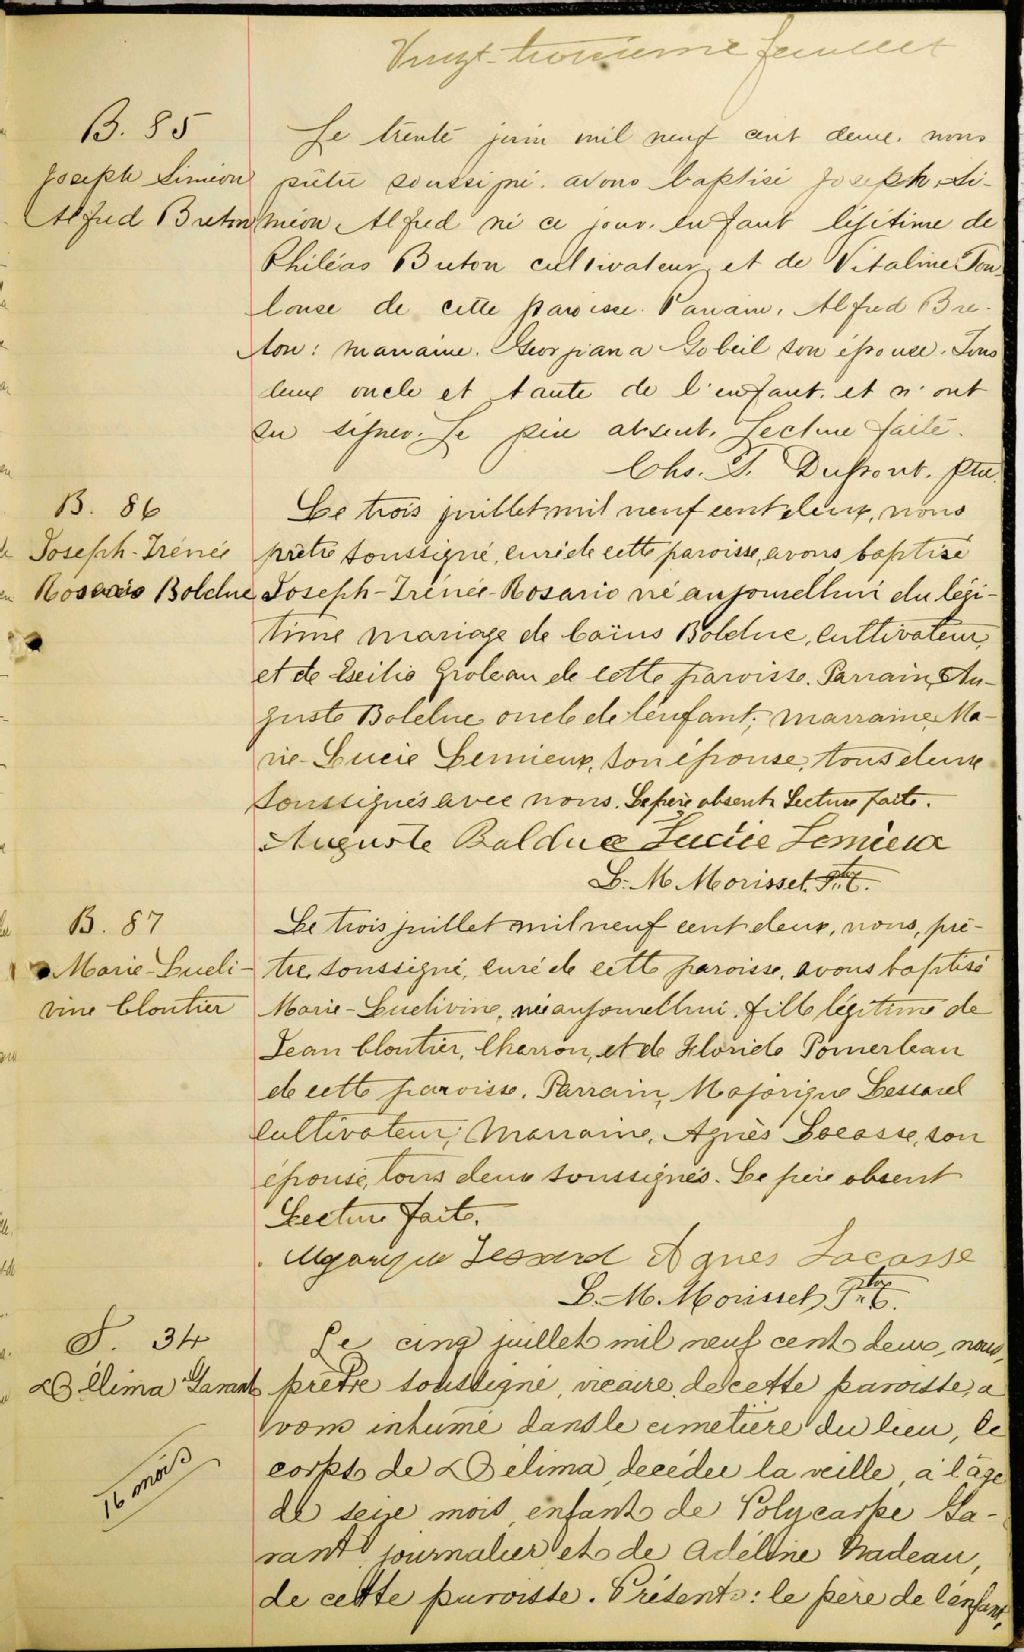 Vingt-troisième feuillet
B. 85
Joseph Siméon
Alfred Breton
Le trente juin mil neuf cent deux, nous
prêtre soussigné, avons baptisé Joseph, Si-
méon, Alfred né ce jour, enfant légitime de
Philéas Breton cultivateur, et de Vitaline Tou-
louse de cette paroisse. Parrain, Alfred Bre-
ton: marraine. Georgiana Gobeil son épouse. Tous
deux oncle et tante de l'enfant, et n'ont
su signer. Le père absent, Lecture faite.
Chs. T. Dupont. Ptre.
B. 86
Joseph-Irénée
Rosario Bolduc
Le trois juillet, mil neuf cent deux, nous
prêtre soussigné, curé de cette paroisse, avons baptisé
Joseph-Irénée-Rosario né aujourd'hui du légi-
time mariage de Caïus Bolduc, cultivateur,
et de Groleau de cette paroisse. Parrain, Au-
guste Bolduc oncle de l'enfant; marraine, Ma-
rie-Lucie Lemieux, son épouse, tous deux
soussignés avec nous. Le père absent. Lecture faite.
Auguste Balduc Lucie Lemieux
L.-M. Morisset, Ptre
B. 87
Marie-Ludi-
vine Cloutier
Le trois juillet mil neuf cent deux, nous, prê-
tre, soussigné, curé de cette paroisse, avons baptisé
Marie-Ludivine, née aujourd'hui, fille légitime de
Jean Cloutier, Charron, et de Floride Pomerleau
de cette paroisse. Parrain, Majorique Lessard
cultivateur; Marraine, Agnès Lacasse, son
épouse, tous deux soussignés. Le père absent
Lecture faite.
Lessard Agnes Lacasse
L.-M. Morisset, Ptre
S. 34
Délima Garant
16 mois
Le cinq juillet mil neuf cent deux, nous,
prêtre soussigné, vicaire de cette paroisse, a
vons inhumé dans le cimetière du lieu, le
corps de Délima, décédée la veille, à l'âge
de seize mois, enfant de Polycarpe Ga-
rant journalier et de Adéline Nadeau,
de cette paroisse. Présents: le père de l'enfant,